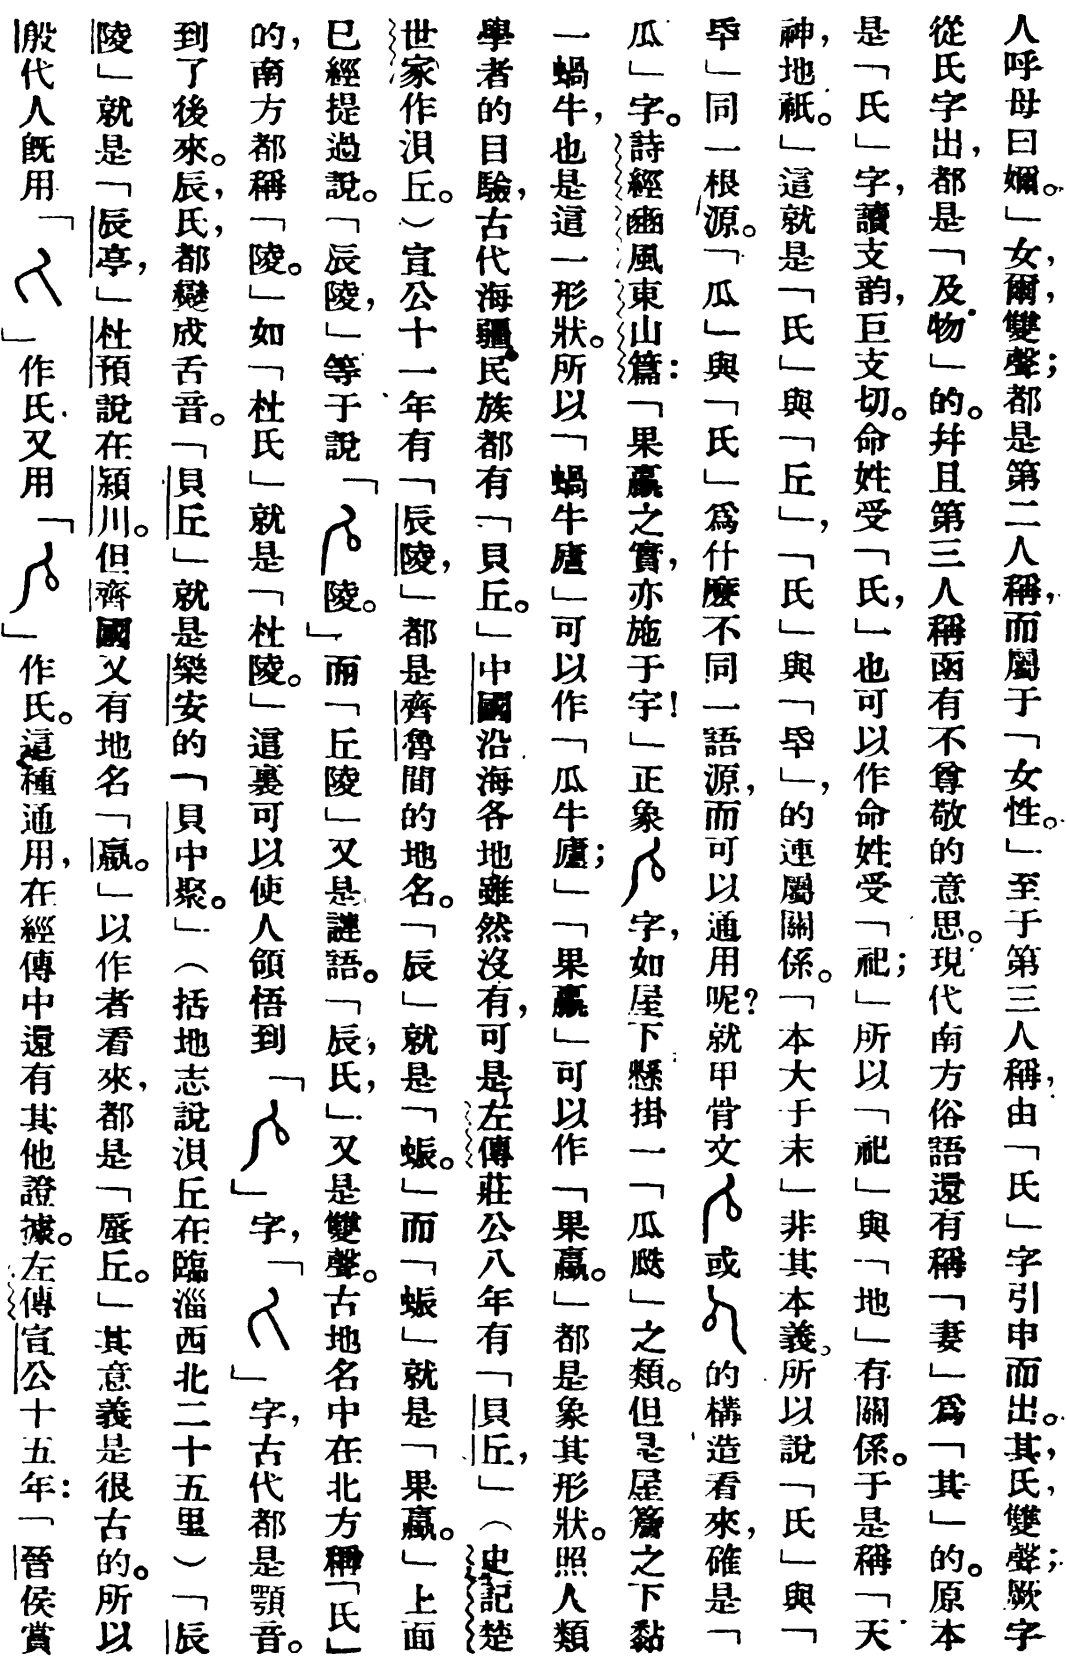 人呼母曰嬭。」女,爾,雙聲;都是第二人稱,而屬于「女性。」至于第三人稱,由「氏」字引申而出。其,氏,雙聲;厥字
從氏字出,都是「及物」的。幷且第三人稱函有不尊敬的意思。現代南方俗語還有稱「妻」爲「其」的。原本
是「氏」字,讀支韵,巨支切。命姓受「氏,」也可以作命姓受「祀;」所以「祀」與「地」有關係。于是稱「天
神,地祇。」這就是「氏」與「丘」,「氏」與「氒」,的連屬關係。「本大于末」非其本義,所以說「氏」與「
氒」同一根源。「瓜」與「氏」爲什麼不同一語源,而可以通用呢?就甲骨文或的構造看來,確是「
瓜」字。詩經豳風東山篇:「果臝之實,亦施于宇!」正象字,如屋下懸掛一「瓜瓞」之類。但是屋簷之下黏
一蝸牛,也是這一形狀。所以「蝸牛廬」可以作「瓜牛廬;」「果臝」可以作「果蠃。」都是象其形狀。照人類
學者的目驗,古代海疆民族都有「貝丘。」中國沿海各地雖然沒有,可是左傳莊公八年有「貝丘,」(史記楚
世家作浿丘。)宣公十一年有「辰陵,」都是齊魯間的地名。「辰」就是「蜄。」而「蜄」就是「果蠃。」上面
已經提過說。「辰陵,」等于說「陵。」而「丘陵」又是謰語。「辰,氏,」又是雙聲。古地名中在北方稱「氏」
的,南方都稱「陵。」如「杜氏」就是「杜陵。」這裏可以使人領悟到「」字,「」字,古代都是顎音。
到了後來。辰,氏,都變成舌音。「貝丘」就是樂安的「貝中聚。」(括地志說浿丘在臨淄西北二十五里)「辰
陵」就是「辰亭,」杜預說在潁川。但齊國又有地名「嬴。」以作者看來,都是「蜃丘。」其意義是很古的。所以
殷代人既用「」作氏,又用「」作氏。這種通用,在經傳中還有其他證據。左傳宣公十五年:「晉侯賞